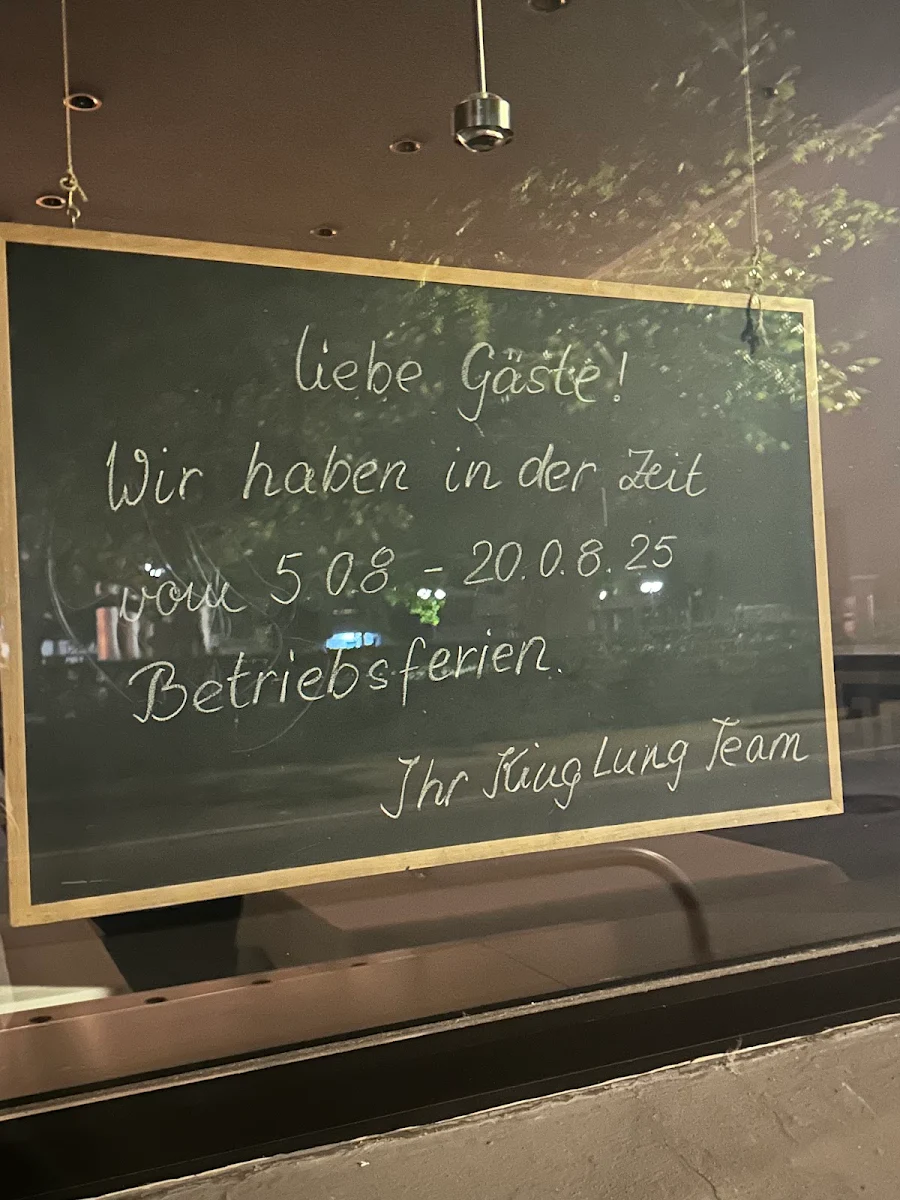 Liebe Gäste!
Wir haben in der Zeit
vom 5.08. - 20.0.8.25
Betriebsferien.
Ihr King Lung Team